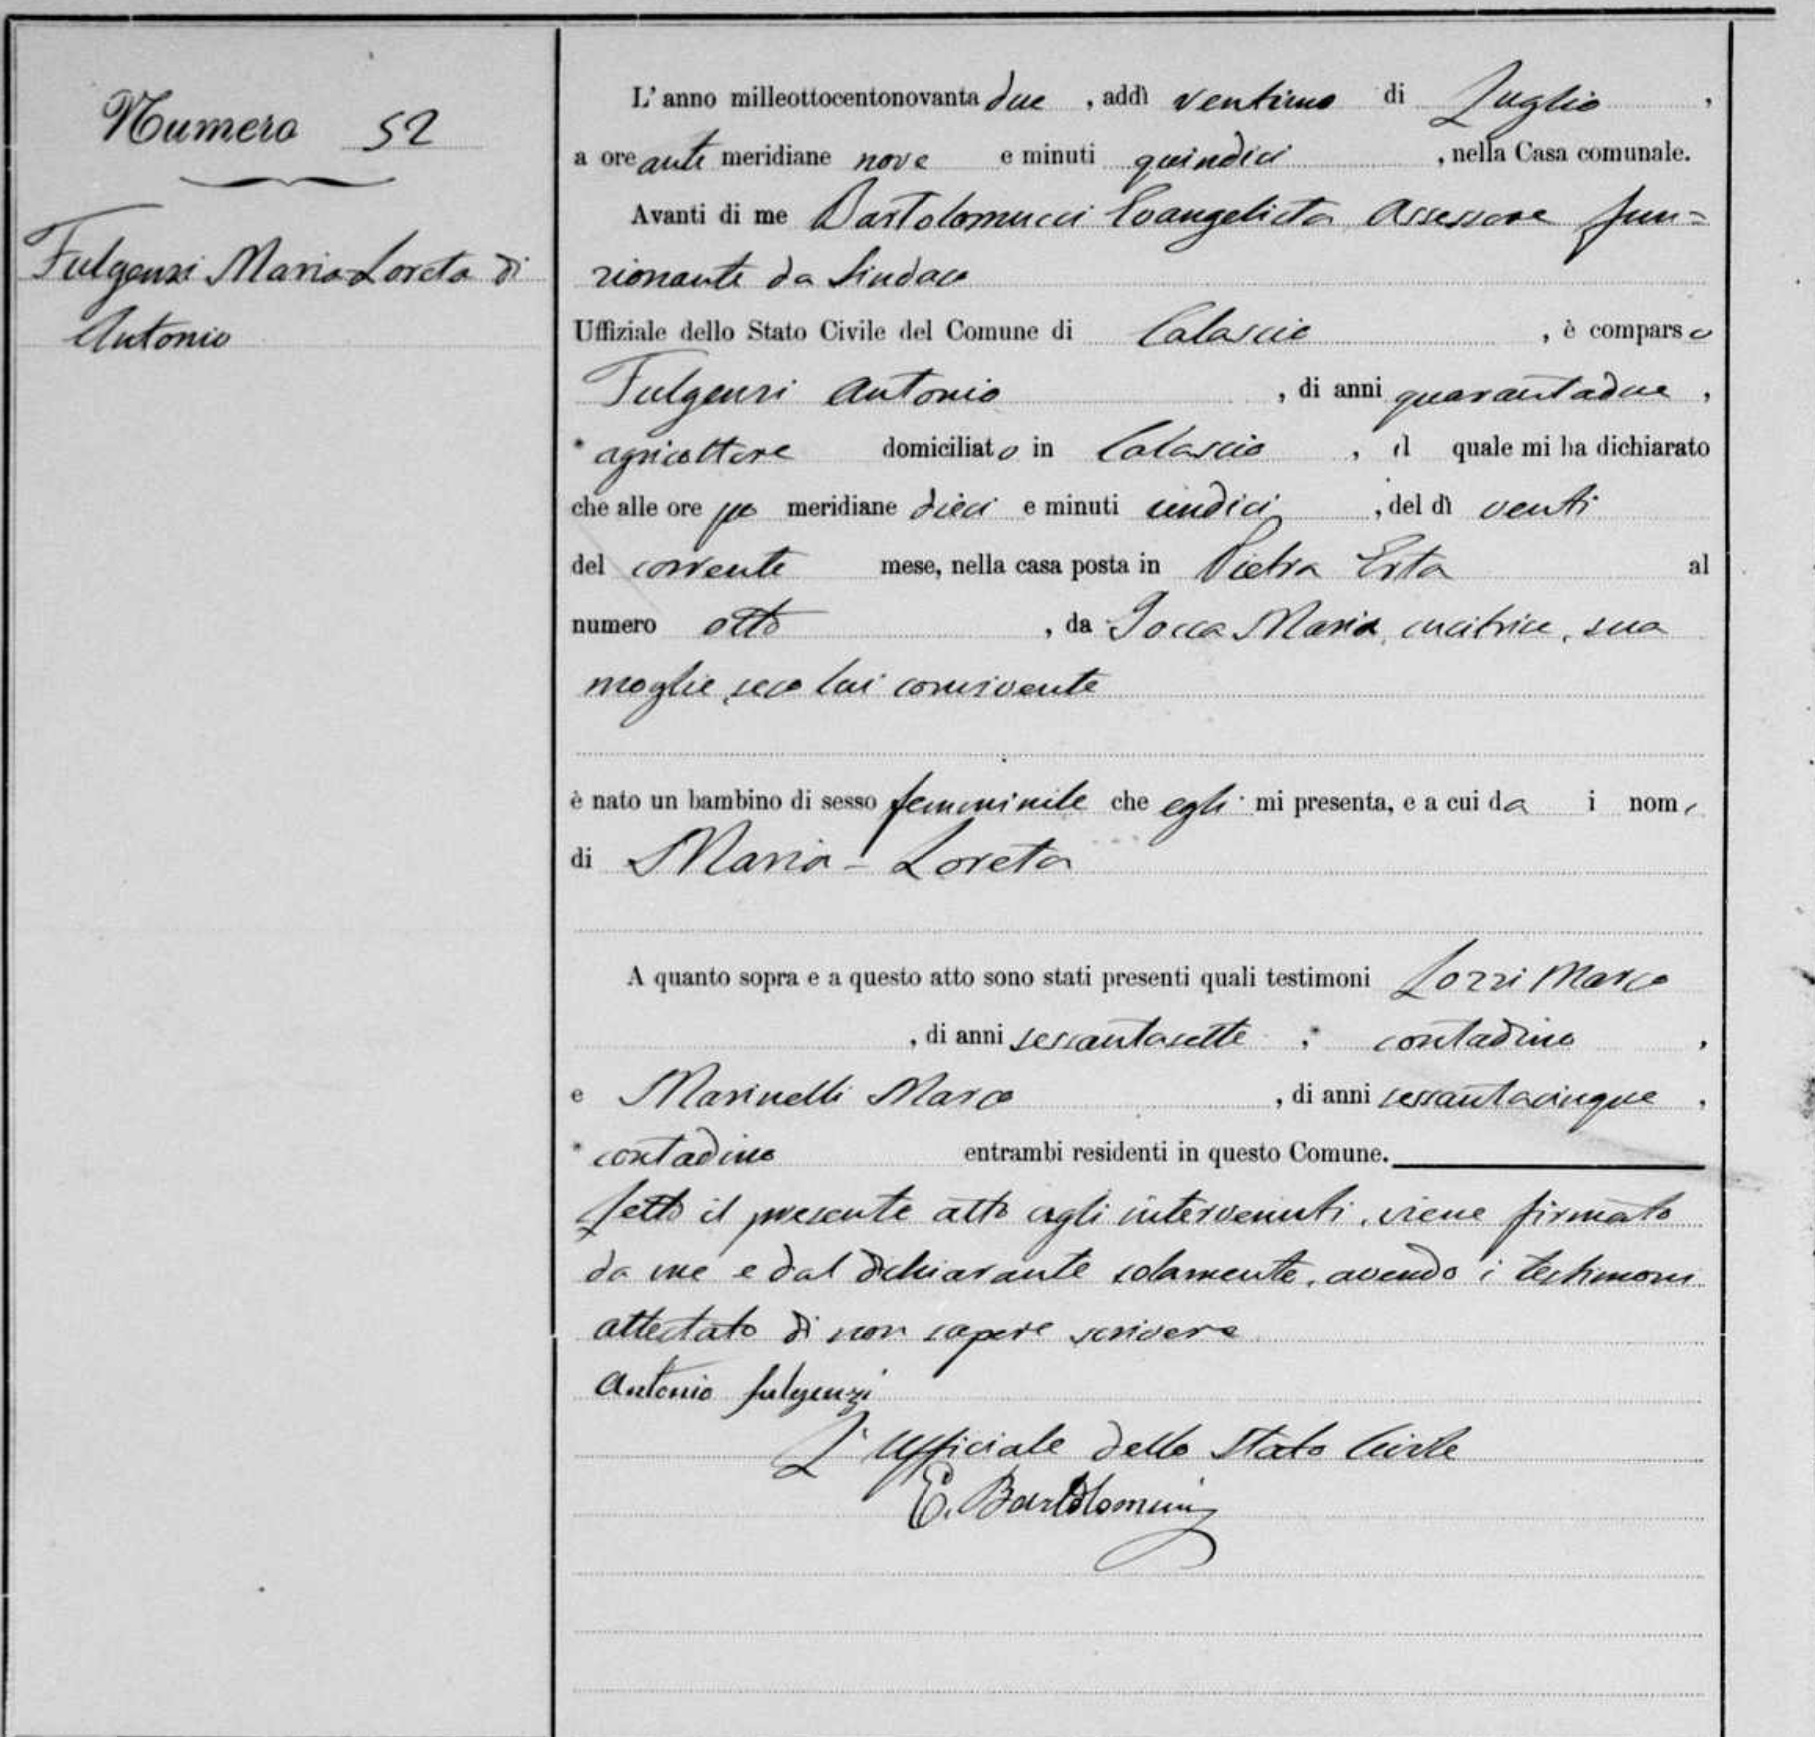 Numero 52
Fulgenzi Maria-Loreta di
Antonio
L'anno milleottocentonovanta due , addì ventuno di Luglio ,
a ore ante meridiane nove e minuti quindici , nella Casa comunale.
Avanti di me Bartolomucci Evangelista Assessore fun=
zionante da Sindaco
Uffiziale dello Stato Civile del Comune di Calascio , è comparso
Fulgenzi Antonio , di anni quarantadue ,
* agricoltore domiciliato in Calascio , il quale mi ha dichiarato
che alle ore po meridiane dieci e minuti undici , del dì venti
del corrente mese, nella casa posta in Pietra Erta al
numero otto , da Jocca Maria, cucitrice, sua
moglie, seco lui convivente
è nato un bambino di sesso femminile che egli mi presenta, e a cui da i nomi
di Maria - Loreta
A quanto sopra e a questo atto sono stati presenti quali testimoni Lozzi Marco
, di anni sessantasette , * contadino ,
e Marinelli Marco , di anni sessantacinque ,
* contadino entrambi residenti in questo Comune.
Letto il presente atto agli intervenuti, viene firmato
da me e dal dichiarante solamente, avendo i testimoni
attestato di non sapere scrivere
Antonio fulgenzi
L'Ufficiale dello Stato Civile
E. Bartolomucci